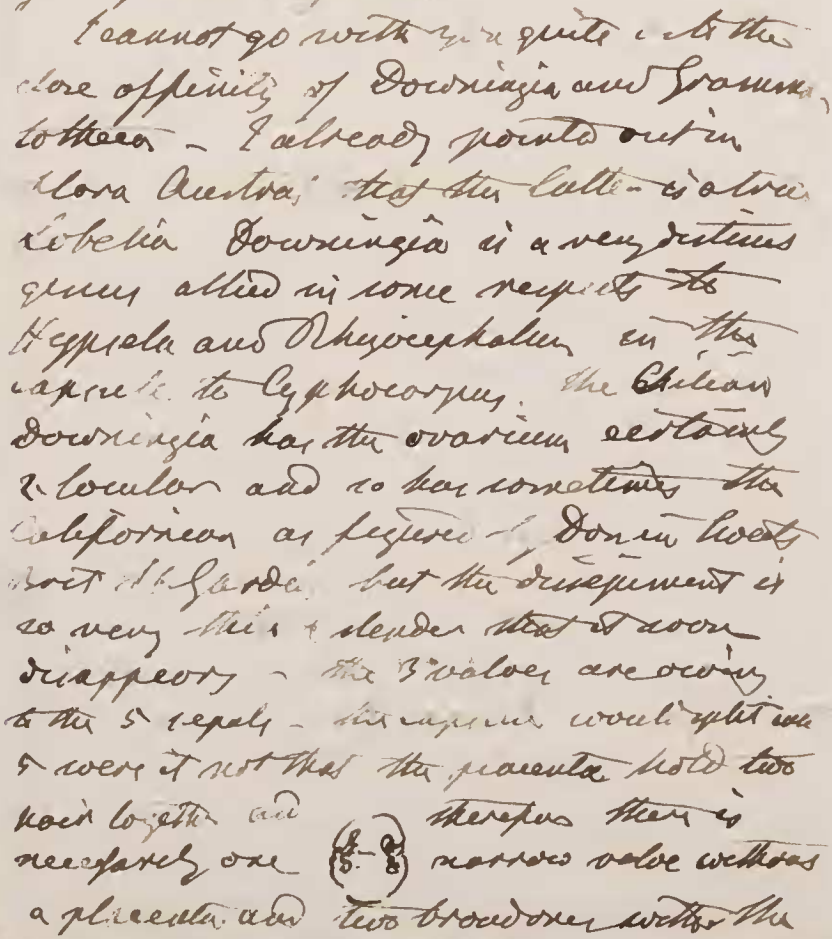 I cannot go with you quite as to the
close affinity of Downingia and Gramma
totheca - I already pointed out in
Flora Austral that the latter is a true
Lobelia Downingia is a very distinct
genus allied in some respects to
Hypsela and Rhizocephalum in the
capsule to Cyphocarpus. The Chilian
Downingia has the ovarium certainly
2 locular and so has sometimes the
Californian as figured by Don in Sweets
Brit Fl Garden but the dissepiment is
so very thin & slender that it soon
disappears - the 3 valves are owing
to the 5 sepals - the capsule would split into
5 were it not that the placenta hold two
pair together and therefore there is
necessarily one narrow valve without
a placenta and two broad ones with the